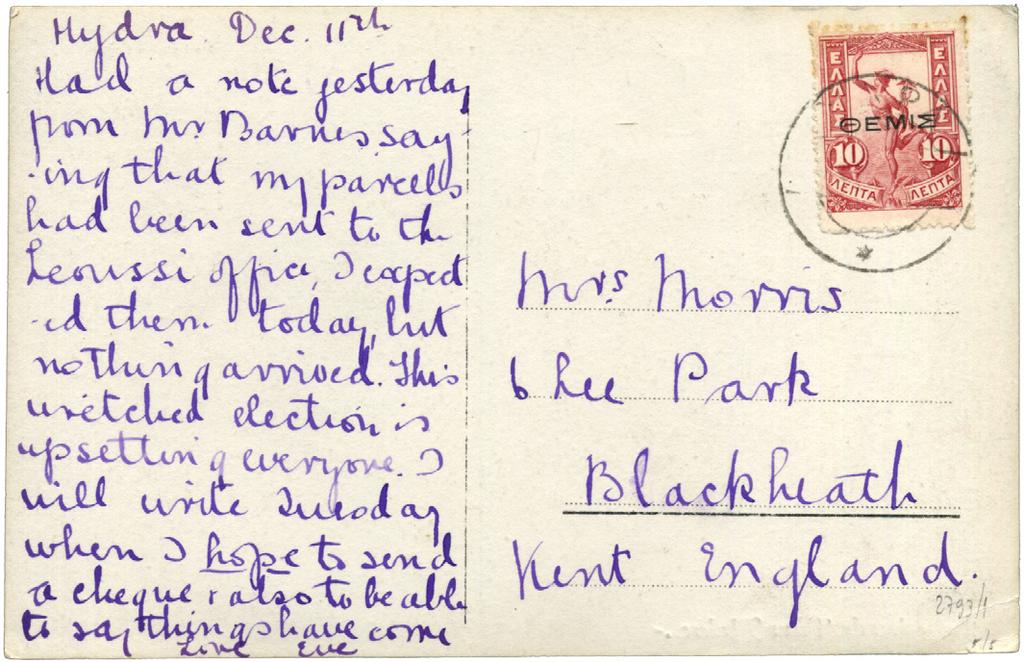 Hydra. Dec. 11th
Had a note yesterday
from Mr Barnes say-
-ing that my parcels
had been sent to the
Leoussi office, I expect
-ed them today, but
nothing arrived. This
wretched election is
upsetting everyone. I
will write Tuesday
when I hope to send
a cheque & also to be able
to say things have come
Love Eve
ΕΛΛΑΣ ΕΛΛΑΣ
ΘΕΜΙΣ
10 10
ΛΕΠΤΑ ΛΕΠΤΑ
Mrs Morris
6 Lee Park
Blackheath
Kent England.
2793/1
5/5